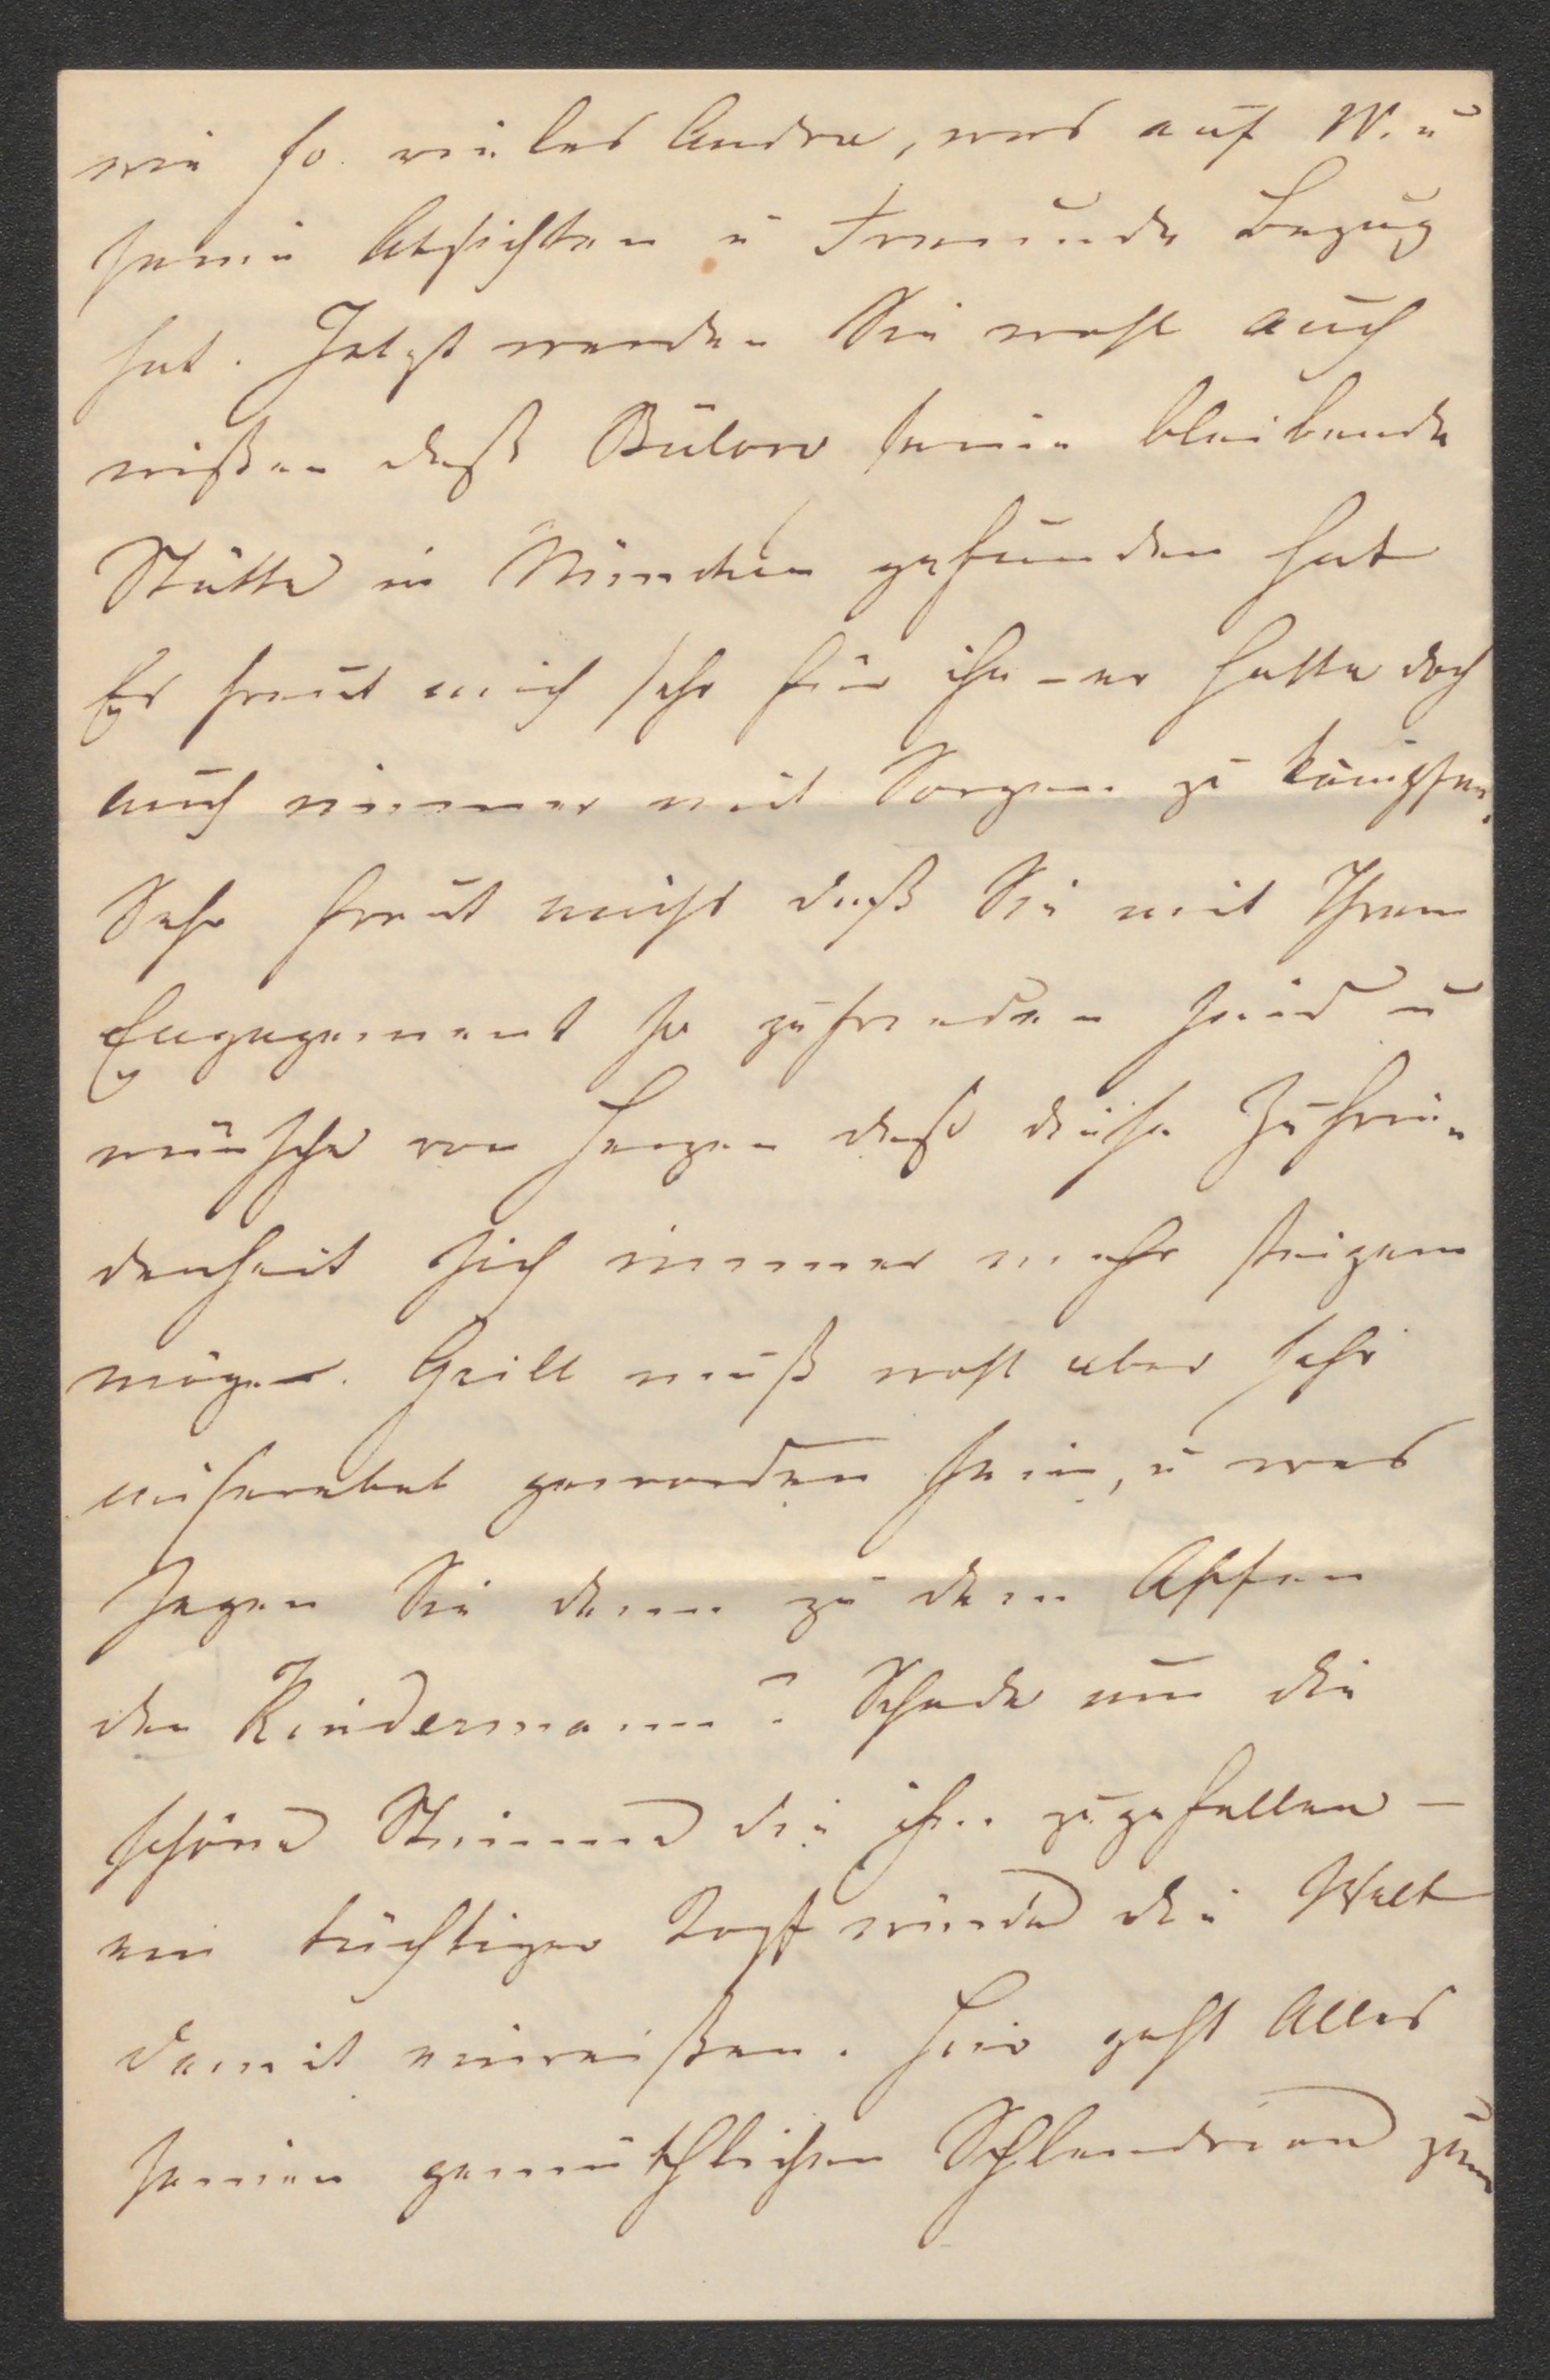 wie so vieles Andre, was auf W. u
seine Absichten u Freunde Bezug
hat. Jetzt werden Sie wohl auch
wißen daß Bülow seine bleibende
Stätte in München gefunden hat
Es freut mich sehr für ihn – er hatte doch
auch immer mit Sorgen zu kämpfen.
Sehr freut michs daß Sie mit Ihrem
Engagement so zufrieden sind u
wünsche von Herzen daß diese Zufrie-
denheit sich immer mehr steigern
möge. Grill muß wohl aber sehr
miserabel geworden sein, u was
sagen Sie denn zu dem Affen
den Kindermann? Schade um die
schöne Stimme die ihm zugefallen –
ein tüchtiger Kopf würde die Welt
damit einreißen. Hier geht Alles
seinen gemüthlichen Schlendrian zum